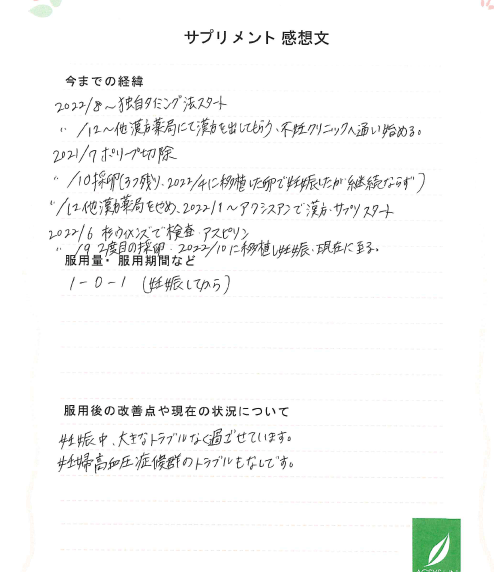 サプリメント 感想文
今までの経緯
2022/8～独自タイミング法スタート
〃 /12～他漢方薬局にて漢方を出してもらう、不妊クリニックへ通い始める。
2021/7 ポリープ切除
〃 /10 採卵(3つ残り、2022/4に移植した卵で妊娠したが継続ならず)
〃/12 他漢方薬局をやめ、2022/1～アクシスアンで漢方・サプリスタート
2022/6 杉ウイメンズで検査・アスピリン
〃 /9 2度目の採卵・2022/10に移植し妊娠・現在に至る。
服用量・服用期間など
1-0-1 (妊娠してから)
服用後の改善点や現在の状況について
妊娠中、大きなトラブルなく過ごせています。
妊婦高血圧症候群のトラブルもなしです。